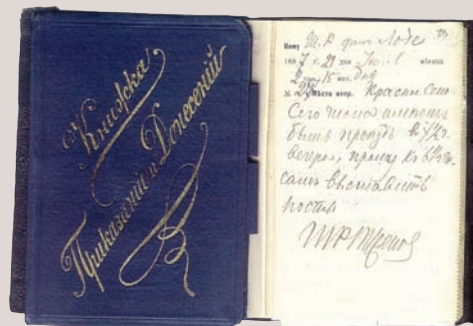 Книжка
Приказаній и Донесеній
Кому Ш. Р. фонъ Лоде
1887 г. 21 дня Іюля мѣсяца
2 час. 15 мин. дня
№ Мѣсто отпр. Красное Село
Сего числа имѣетъ
быть
вечера, прошу къ часамъ
выставить
посты